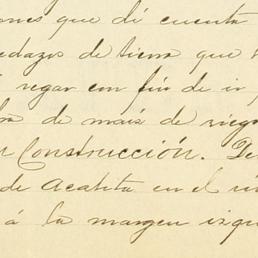 ones que di cuenta
pedazos de tierra que
regar con fin de ir
de maiz de riego
Construcción. De
de Acatita en el
á la margen izqu